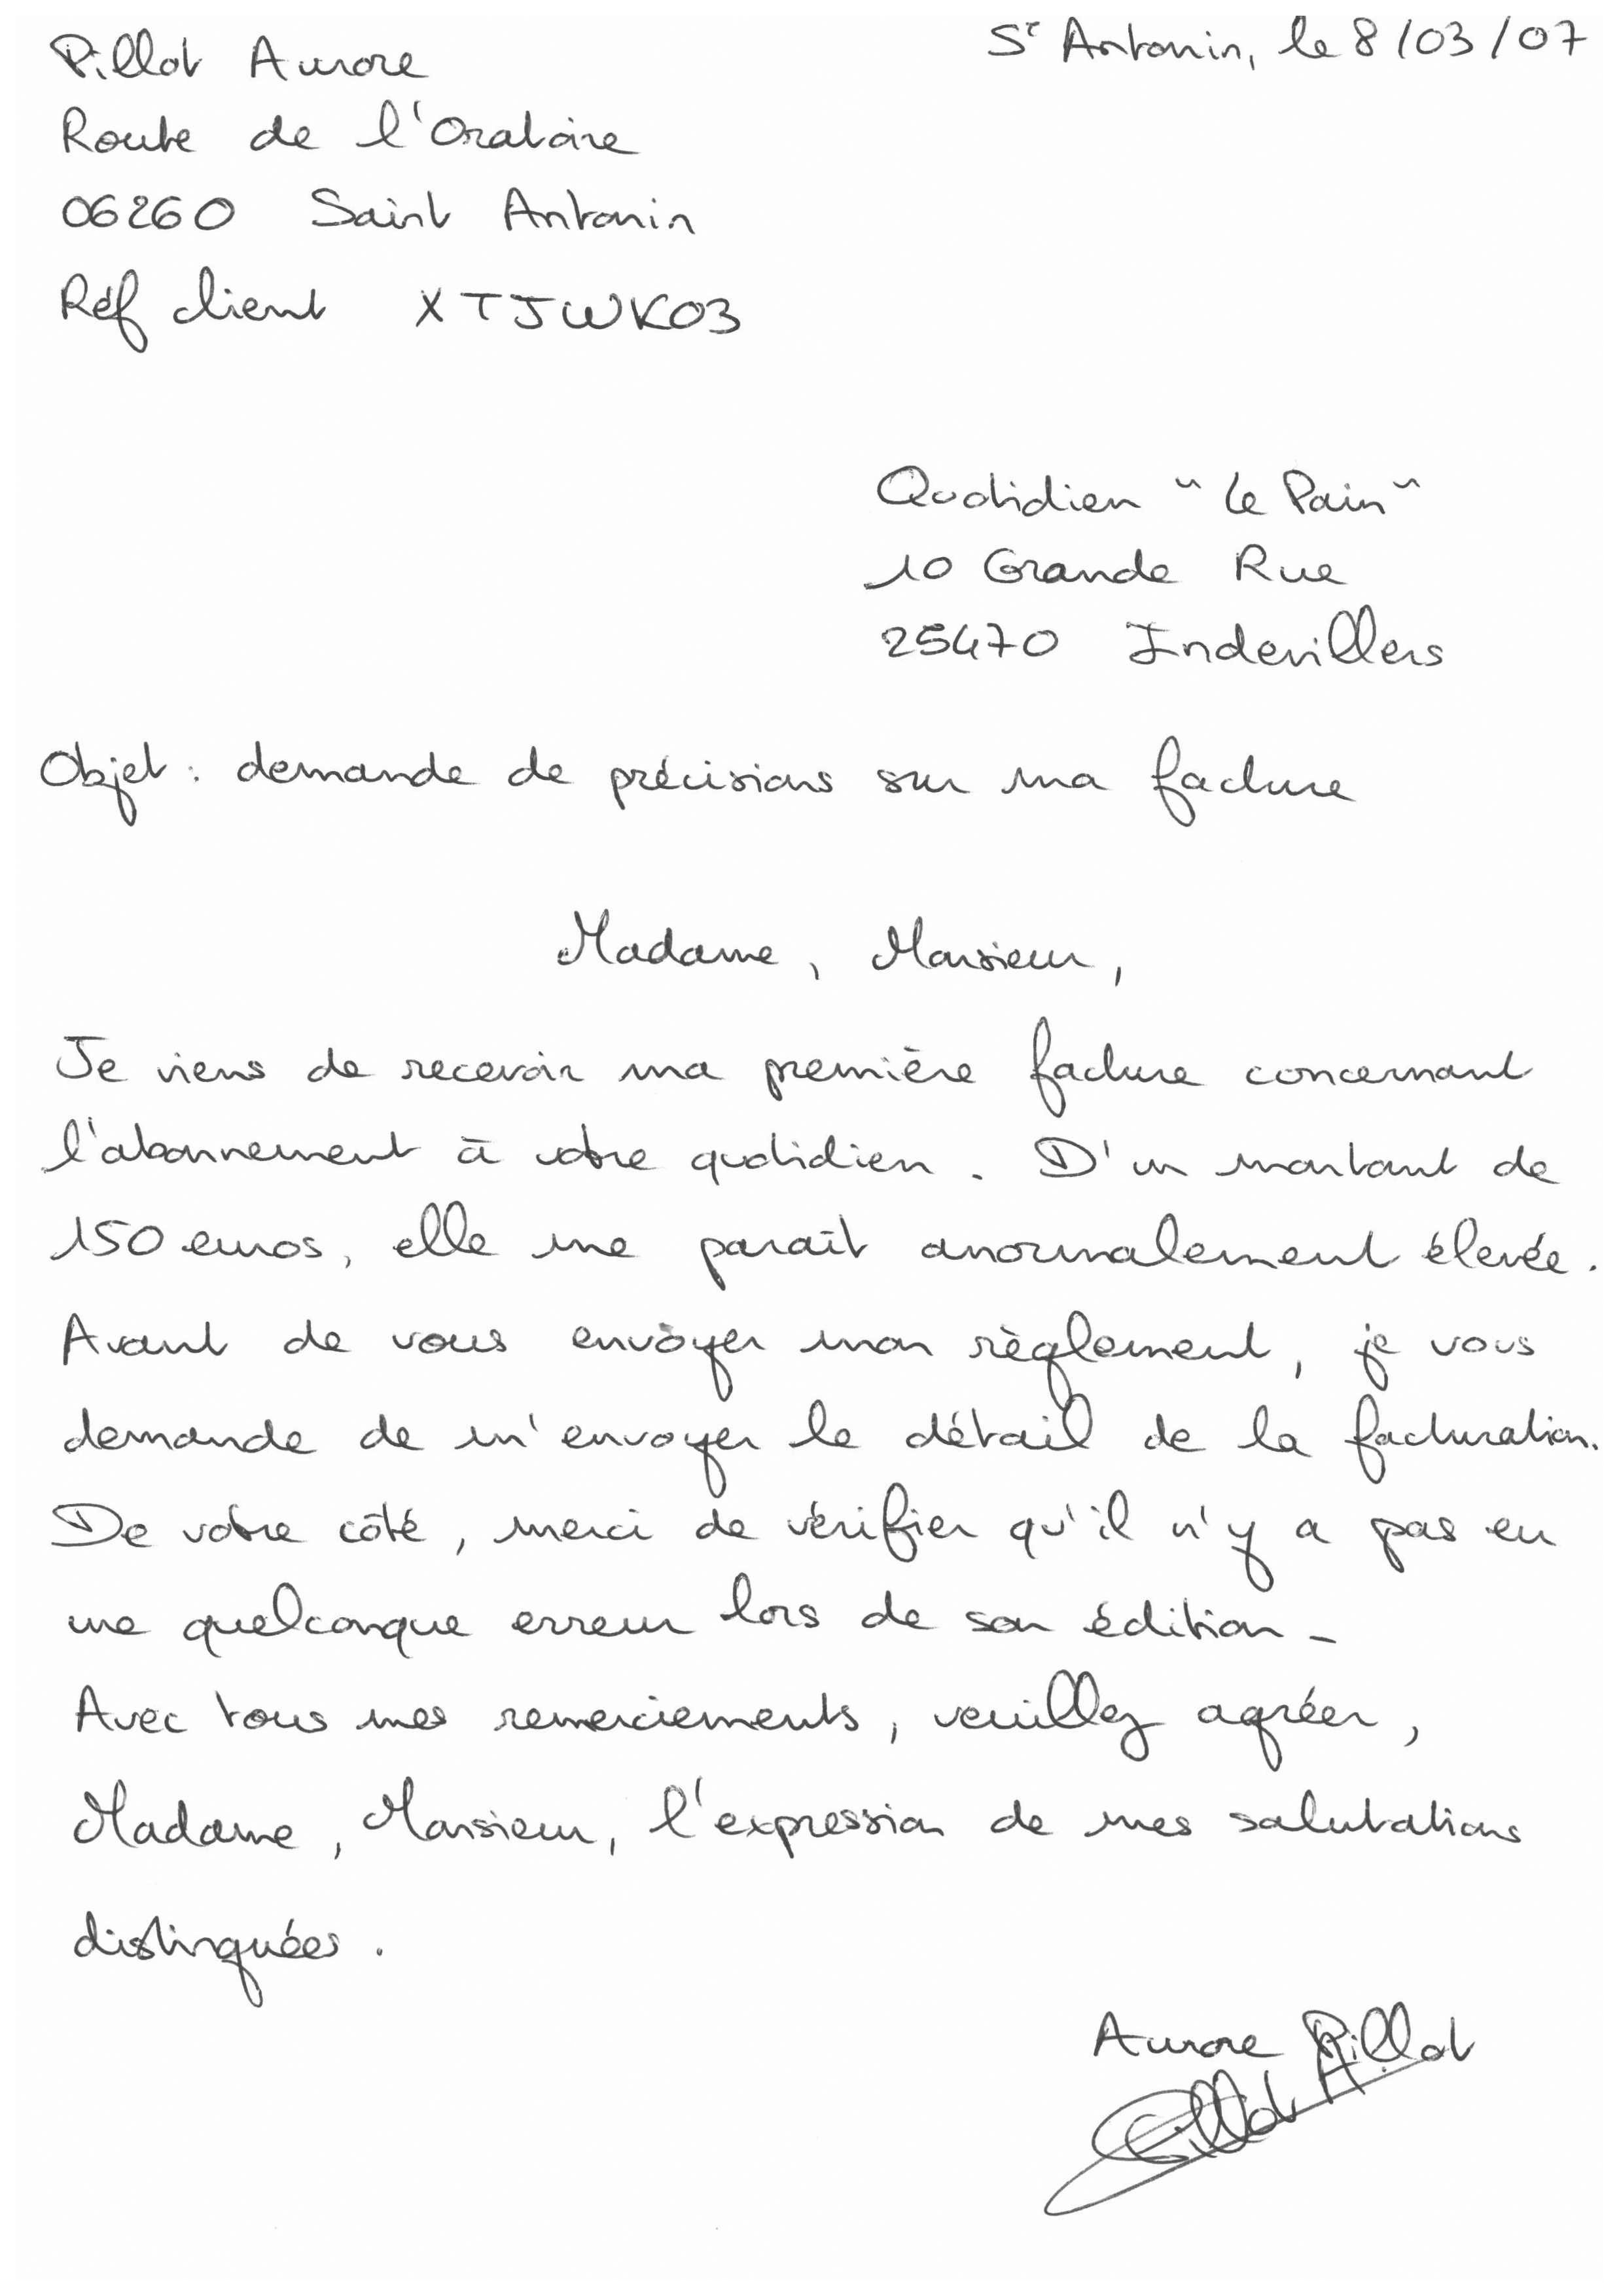 Pillot Aurore
St Antonin, le 8/03/07
Route de l'Oratoire
06260 Saint Antonin
Réf client XTJWK03
Quotidien "Le Pain"
10 Grande Rue
25470 Indevillers
Objet : demande de précisions sur ma facture
Madame, Monsieur,
Je viens de recevoir ma première facture concernant
l'abonnement à votre quotidien. D'un montant de
150 euros, elle me paraît anormalement élevée.
Avant de vous envoyer mon règlement, je vous
demande de m'envoyer le détail de la facturation.
De votre côté, merci de vérifier qu'il n'y a pas eu
une quelconque erreur lors de son édition.
Avec tous mes remerciements, veuillez agréer,
Madame, Monsieur, l'expression de mes salutations
distinguées.
Aurore Pillot
Pillot A.